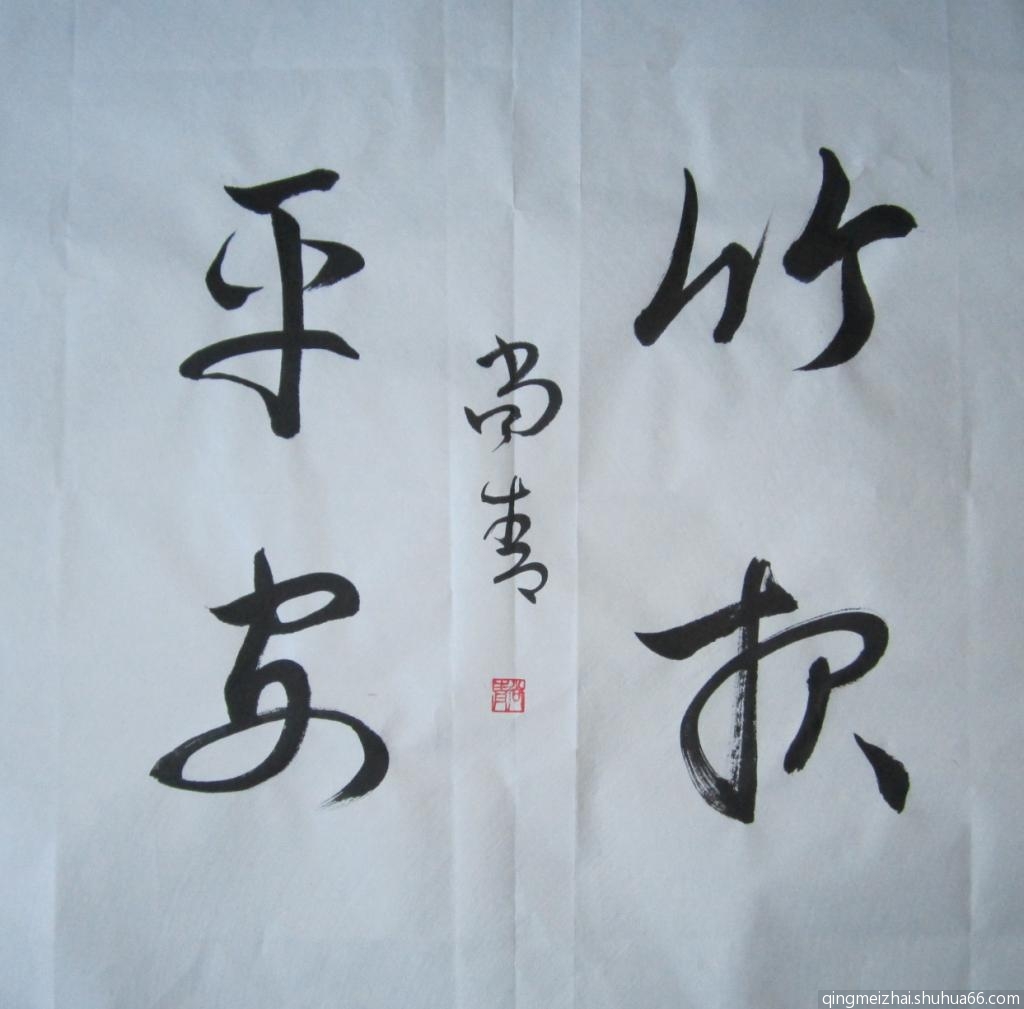 竹报
平安
尚青
尚青
qingmeizhai.shuhua66.com